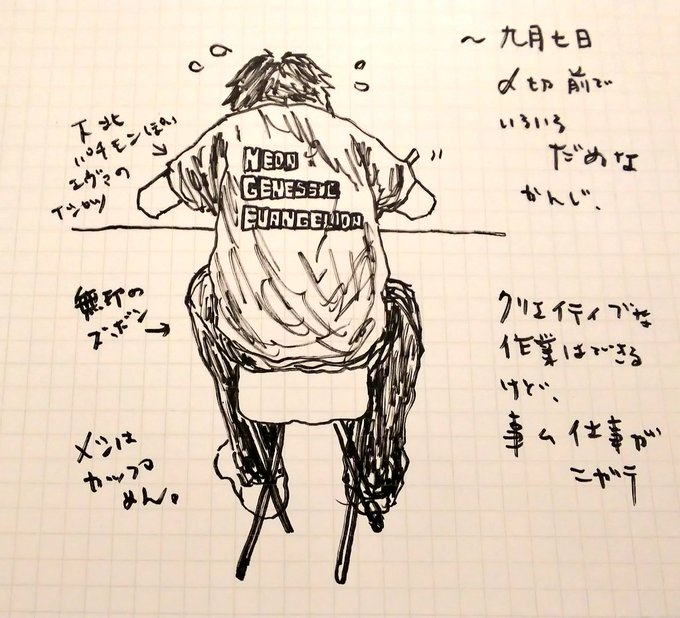 〜 九月七日
〆切前で
いろいろ
だめな
かんじ、
下北
パチモンぽい
エヴァの
Tシャツ
NEON
EVANGELION
無印の
ズボン
メシは
カップ
めん。
クリエイティブな
作業はできる
けど、
事ム仕事が
ニガテ